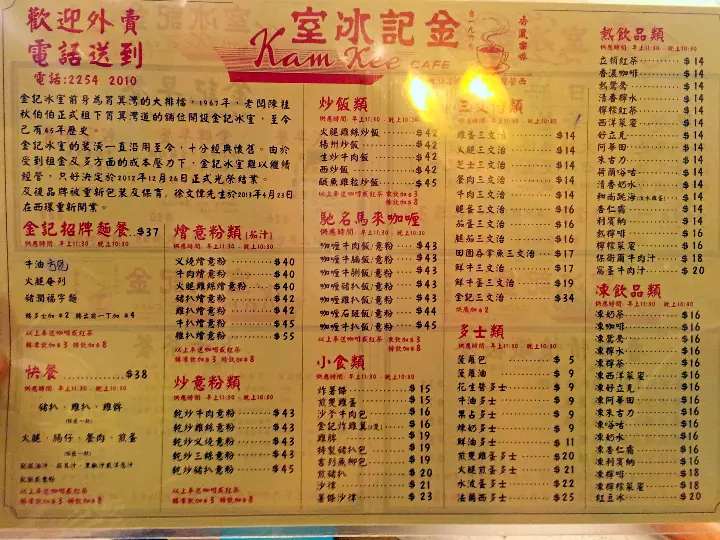 歡迎外賣
電話送到
電話:2254 2010
金記冰室
Kam Kee CAFE
金記冰室前身為筲箕灣的大排檔，1967年，老闆陳桂
秋伯伯正式租下筲箕灣道的鋪位開設金記冰室，至今
已有45年歷史。
金記冰室的裝潢一直沿用至今，十分經典懷舊。由於
受到租金及多方面的成本壓力下，金記冰室難以繼續
經營，只好決定於2012年12月26日正式光榮結業。
及後品牌被重新包裝及保育，徐文偉先生於2013年4月23日
在西環重新開業。
金記招牌麵餐 $37
供應時間:早上11:30-晚上10:30
牛油方包
火腿奄列
豬潤福字麵
轉多士加$2 轉出前一丁加$4
以上奉送咖啡或紅茶
轉凍飲加$3 特飲加$8
快餐 $38
供應時間:早上11:30-晚上10:30
豬扒、雞扒、雞髀
火腿、腸仔、餐肉、煎蛋
以上奉送咖啡或紅茶
轉凍飲加$3 特飲加$8
燴意粉類(茄汁)
供應時間:早上11:30-晚上10:30
叉燒燴意粉 $40
牛肉燴意粉 $40
火腿雞絲燴意粉 $40
豬扒燴意粉 $42
雞扒燴意粉 $42
牛扒燴意粉 $45
雜扒燴意粉 $55
以上奉送咖啡或紅茶
轉凍飲加$3 特飲加$8
炒意粉類
供應時間:早上11:30-晚上10:30
乾炒牛肉意粉 $43
乾炒雞絲意粉 $43
乾炒叉燒意粉 $43
乾炒三絲意粉 $43
乾炒豬扒意粉 $45
以上奉送咖啡或紅茶
轉凍飲加$3 特飲加$8
炒飯類
供應時間:早上11:30-晚上10:30
火腿雞絲炒飯 $42
楊州炒飯 $42
生炒牛肉飯 $42
西炒飯 $42
鹹魚雞粒炒飯 $45
以上奉送咖啡或紅茶 凍飲加$3
特飲加$8
馳名馬來咖喱
供應時間:早上11:30-晚上10:30
咖喱牛肉飯/意粉 $43
咖喱牛腩飯/意粉 $43
咖喱牛脷飯/意粉 $43
咖喱豬扒飯/意粉 $43
咖喱雞扒飯/意粉 $43
咖喱石斑飯/意粉 $44
咖喱牛扒飯/意粉 $45
以上奉送咖啡或紅茶 凍飲加$3
特飲加$8
小食類
供應時間:早上11:30-晚上10:30
炸薯條 $15
煎雙雞蛋 $15
沙爹牛肉包 $16
金記炸雞翼 $16
雞髀 $19
特製豬扒包 $19
吉列魚柳包 $19
煎豬扒 $20
沙律 $21
薯條沙律 $23
三文治類
供應時間:早上11:30-晚上10:30
雞蛋三文治 $14
火腿三文治 $14
芝士三文治 $14
餐肉三文治 $14
牛肉三文治 $14
腿蛋三文治 $16
茄蛋三文治 $16
腿茄三文治 $16
田園吞拿魚三文治 $17
鮮牛三文治 $17
鮮牛蛋三文治 $19
金記三文治 $34
烘底加$2
多士類
供應時間:早上11:30-晚上10:30
菠蘿包 $5
菠蘿油 $9
花生醬多士 $9
牛油多士 $9
果占多士 $9
辣奶多士 $9
鮮油多士 $11
煎雙雞蛋多士 $20
火腿煎蛋多士 $21
水波蛋多士 $22
法蘭西多士 $25
熱飲品類
供應時間:早上11:30-晚上10:30
立頓紅茶 $14
香濃咖啡 $14
熱鴛鴦 $14
清香檸水 $14
檸檬紅茶 $14
西洋菜蜜 $14
好立克 $14
阿華田 $14
朱古力 $14
荷蘭唂咕 $14
清香奶水 $14
和尚跳海(滾水雞蛋) $14
杏仁霜 $14
利賓納 $14
熱檸檬 $16
檸檬菜蜜 $16
保衛爾牛肉汁 $18
窩蛋牛肉汁 $20
凍飲品類
供應時間:早上11:30-晚上10:30
凍奶茶 $16
凍咖啡 $16
凍鴛鴦 $16
凍檸水 $16
凍檸茶 $16
凍西洋菜蜜 $16
凍好立克 $16
凍阿華田 $16
凍朱古力 $16
凍唂咕 $16
凍奶水 $16
凍杏仁霜 $16
凍利賓納 $16
凍檸檬 $18
凍檸檬菜蜜 $18
紅豆冰 $20